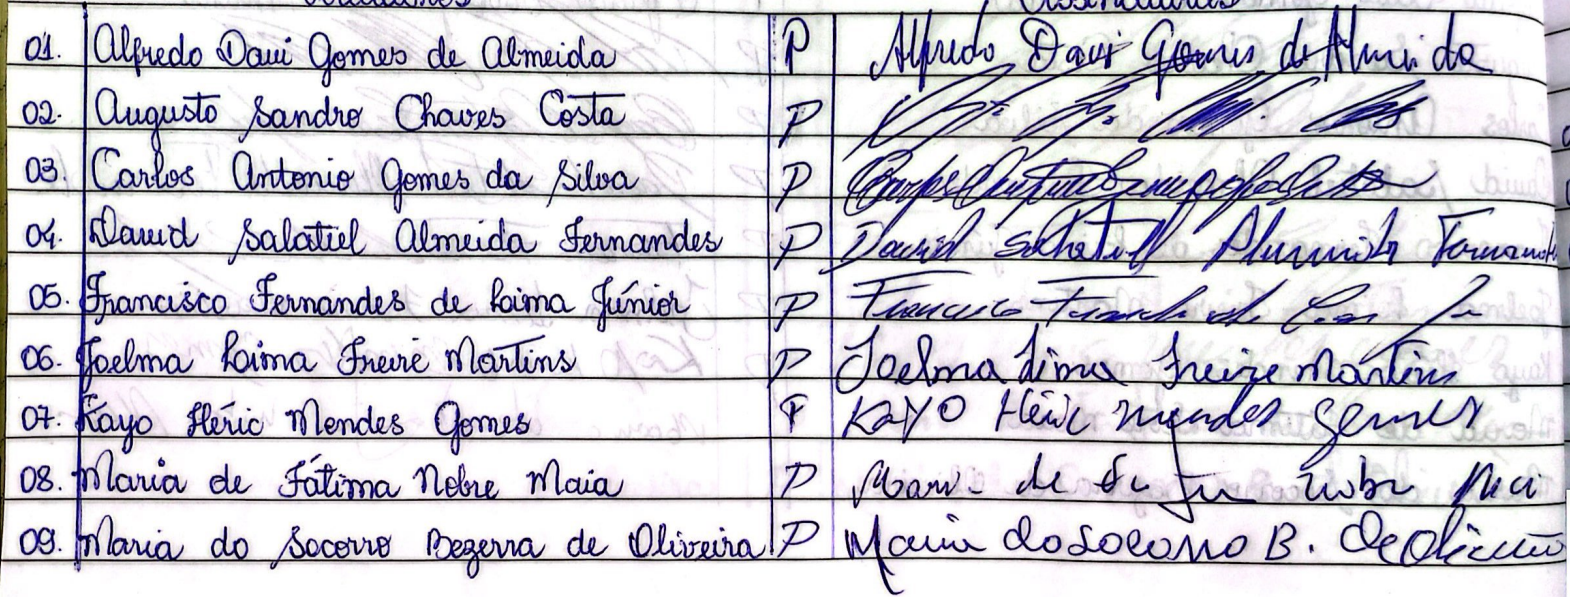 Vereadores Assinaturas
01. Alfredo Davi Gomes de Almeida P Alfredo Davi Gomes de Almeida
02. Augusto Sandro Chaves Costa P
03. Carlos Antonio Gomes da Silva P
04. David Salatiel Almeida Fernandes P David Salatiel Almeida Fernandes
05. Francisco Fernandes de Lima Júnior P Francisco Fernandes de Lima Jr
06. Joelma Lima Freire Martins P Joelma Lima Freire Martins
07. Kayo Héric Mendes Gomes F Kayo Héric Mendes Gomes
08. Maria de Fátima Nobre Maia P Maria de Nobre Mai
09. Maria do Socorro Bezerra de Oliveira P Maria do Socorro B. de Oliveira